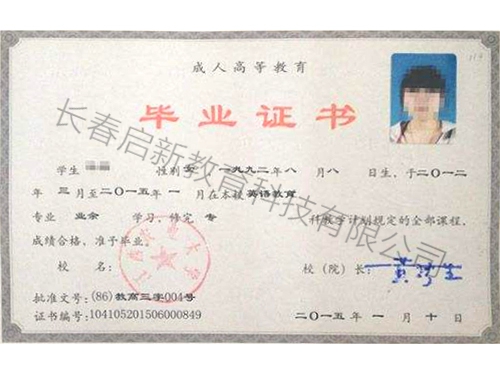 成人高等教育
毕业证书
学生 性别 女 一九九二年八月八日生，于二〇一二
年三月至二〇一五年一月在本校英语教育
专业业余学习，修完专科教学计划规定的全部课程，
成绩合格，准予毕业。
校名： 校（院）长：
批准文号：(86)教高三字004号
证书编号：104105201506000849
二〇一五年一月十日
长春启新教育科技有限公司